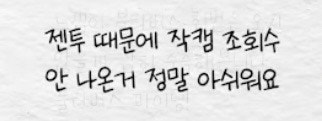 젠투 때문에 작캠 조회수
안 나온거 정말 아쉬워요